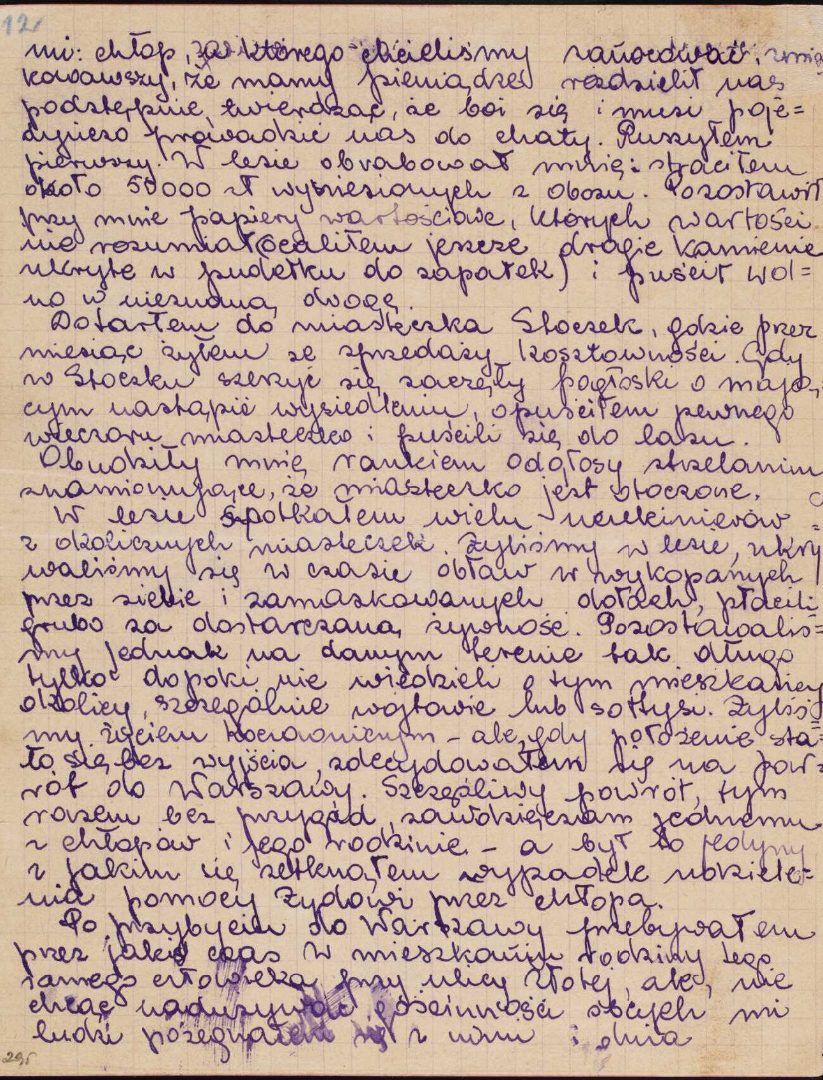 12
mi: chłop, za którego chcieliśmy zanocować,
kowawszy, że mamy pieniądze rozdzielił nas
podstępnie, twierdząc, że boi się i musi poje=
dyńczo prowadzić nas do chaty. Ruszyłem
pierwszy. W lesie obrabował mnię: straciłem
około 50000 zł wyniesionych z obozu. Pozostawił
przy mnie papiery wartościowe, których wartości
nie rozumiał (ocaliłem jeszcze drogie kamienie
ukryte w pudełku do zapałek) i puścił wol=
no w nieznaną drogę.
Dotarłem do miasteczka Stoczek, gdzie przez
miesiąc żyłem ze sprzedaży kosztowności. Gdy
w Stoczku szerzyć się zaczęły pogłoski o mają=
cym nastąpić wysiedleniu, opuściłem pewnego
wieczoru miasteczko i puścili się do lasu.
Obudziły mnię rankiem odgłosy strzelaniny
znamionujące, że miasteczko jest otoczone.
W lesie spotkałem wielu uciekinierów
z okolicznych miasteczek. Żyliśmy w lesie, ukry
waliśmy się w czasie obław w wykopanych
przez siebie i zamaskowanych dołach, płacili
grubo za dostarczaną żywność. Pozostawaliś=
my jednak na danym terenie tak długo
tylko dopóki nie wiedzieli o tym mieszkańcy
okolicy, szczególnie wójtowie lub sołtysi. Żyliś
my życiem koczowniczym – ale, gdy położenie sta=
ło się bez wyjścia, zdecydowałem się na pow=
rót do Warszawy. Szczęśliwy powrót, tym
razem bez przygód, zawdzięczam jednemu
z chłopów i jego rodzinie – a był to jedyny
z jakim się zetknąłem wypadek udziele=
nia pomocy Żydowi przez chłopa.
Po przybyciu do Warszawy przebywałem
przez jakiś czas w mieszkaniu rodziny tego
samego człowieka przy ulicy Złotej, ale, nie
chcąc nadużywać gościnności obcych mi
ludzi pożegnałem się z nimi i dnia